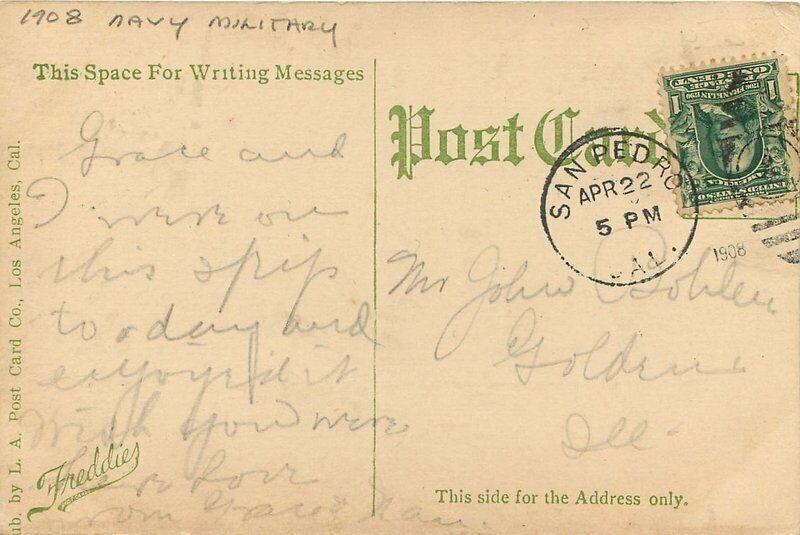 1908 NAVY MILITARY
This Space For Writing Messages
Grace and
I were on
this ship
to day and
enjoyed it
Wish you were
here Love
from Grace &
Freddies
ub. by L. A. Post Card Co., Los Angeles, Cal.
Post Card
ONE CENT
1
1
SAN PEDRO
APR 22
5 PM
CAL.
1908
Mr John Bohlen
Golden
Ill.
This side for the Address only.